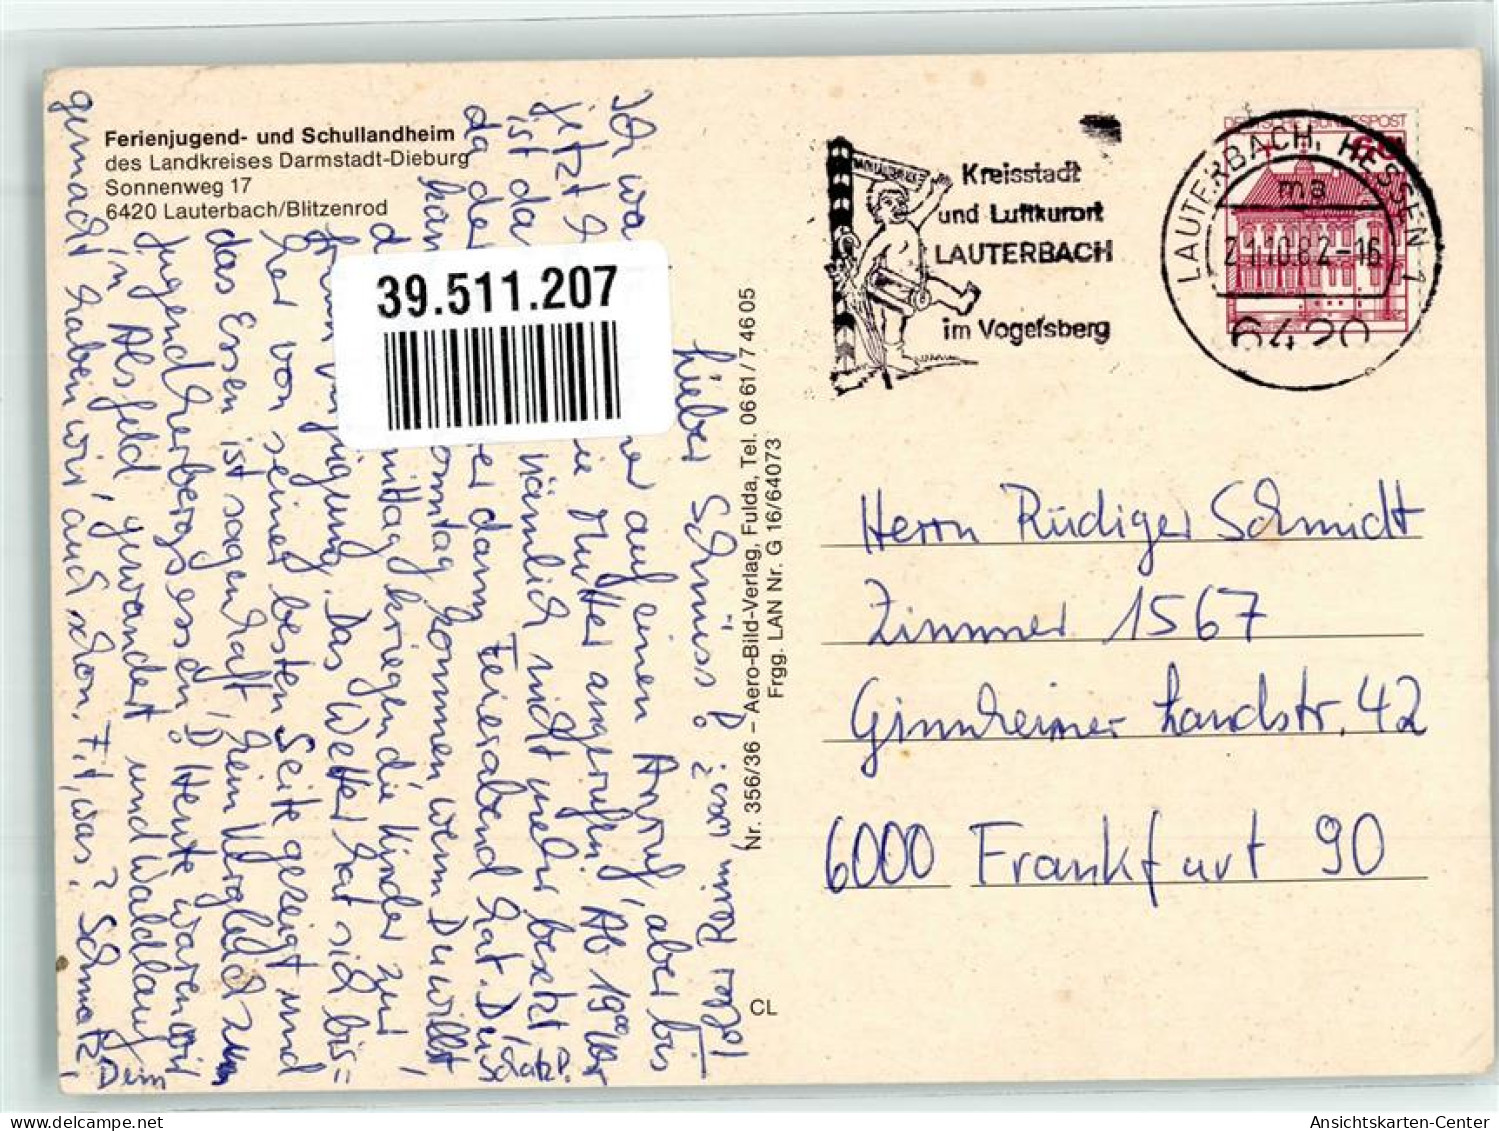 Ferienjugend- und Schullandheim
des Landkreises Darmstadt-Dieburg
Sonnenweg 17
6420 Lauterbach/Blitzenrod
39.511.207
Nr. 356/36 – Aero-Bild-Verlag, Fulda, Tel. 06 61 / 7 46 05
Frgg. LAN Nr. G 16/64073
CL
Kreisstadt
und Luftkurort
LAUTERBACH
im Vogelsberg
DEUTSCHE BUNDESPOST
LAUTERBACH, HESSEN 1
ma
21.10.82-16
6420
Herrn Rüdiger Schmidt
Zimmer 1567
Ginnheimer Landstr. 42
6000 Frankfurt 90
Lieber
Ich auf einen Anruf, aber bis
jetzt Mutter angerufen. Ab 19⁰⁰ Uhr
ist da nämlich nicht mehr besetzt,
da der dann Feierabend hat. Du
kommen wenn Du willst
mittag kriegen die Kinder zur
Verfügung. Das Wetter hat sich bis=
her von seiner besten Seite gezeigt und
das Essen ist sagenhaft, kein Vergleich zum
Jugendherbergsessen! Heute waren wir
in Alsfeld, gewandert und Waldlauf
gemacht haben wir auch schon. Fit, was? Schmatz,
Dein